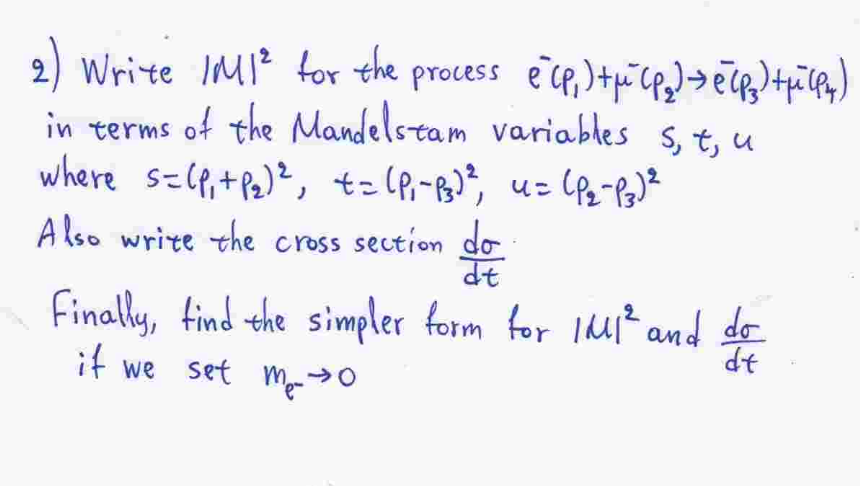 2) Write |M|² for the process e⁻(p₁)+μ⁻(p₂)→e⁻(p₃)+μ⁻(p₄)
in terms of the Mandelstam variables s, t, u
where s=(p₁+p₂)², t=(p₁-p₃)², u=(p₂-p₃)²
Also write the cross section dσ/dt
Finally, find the simpler form for |M|² and dσ/dt
if we set mₑ₋→0